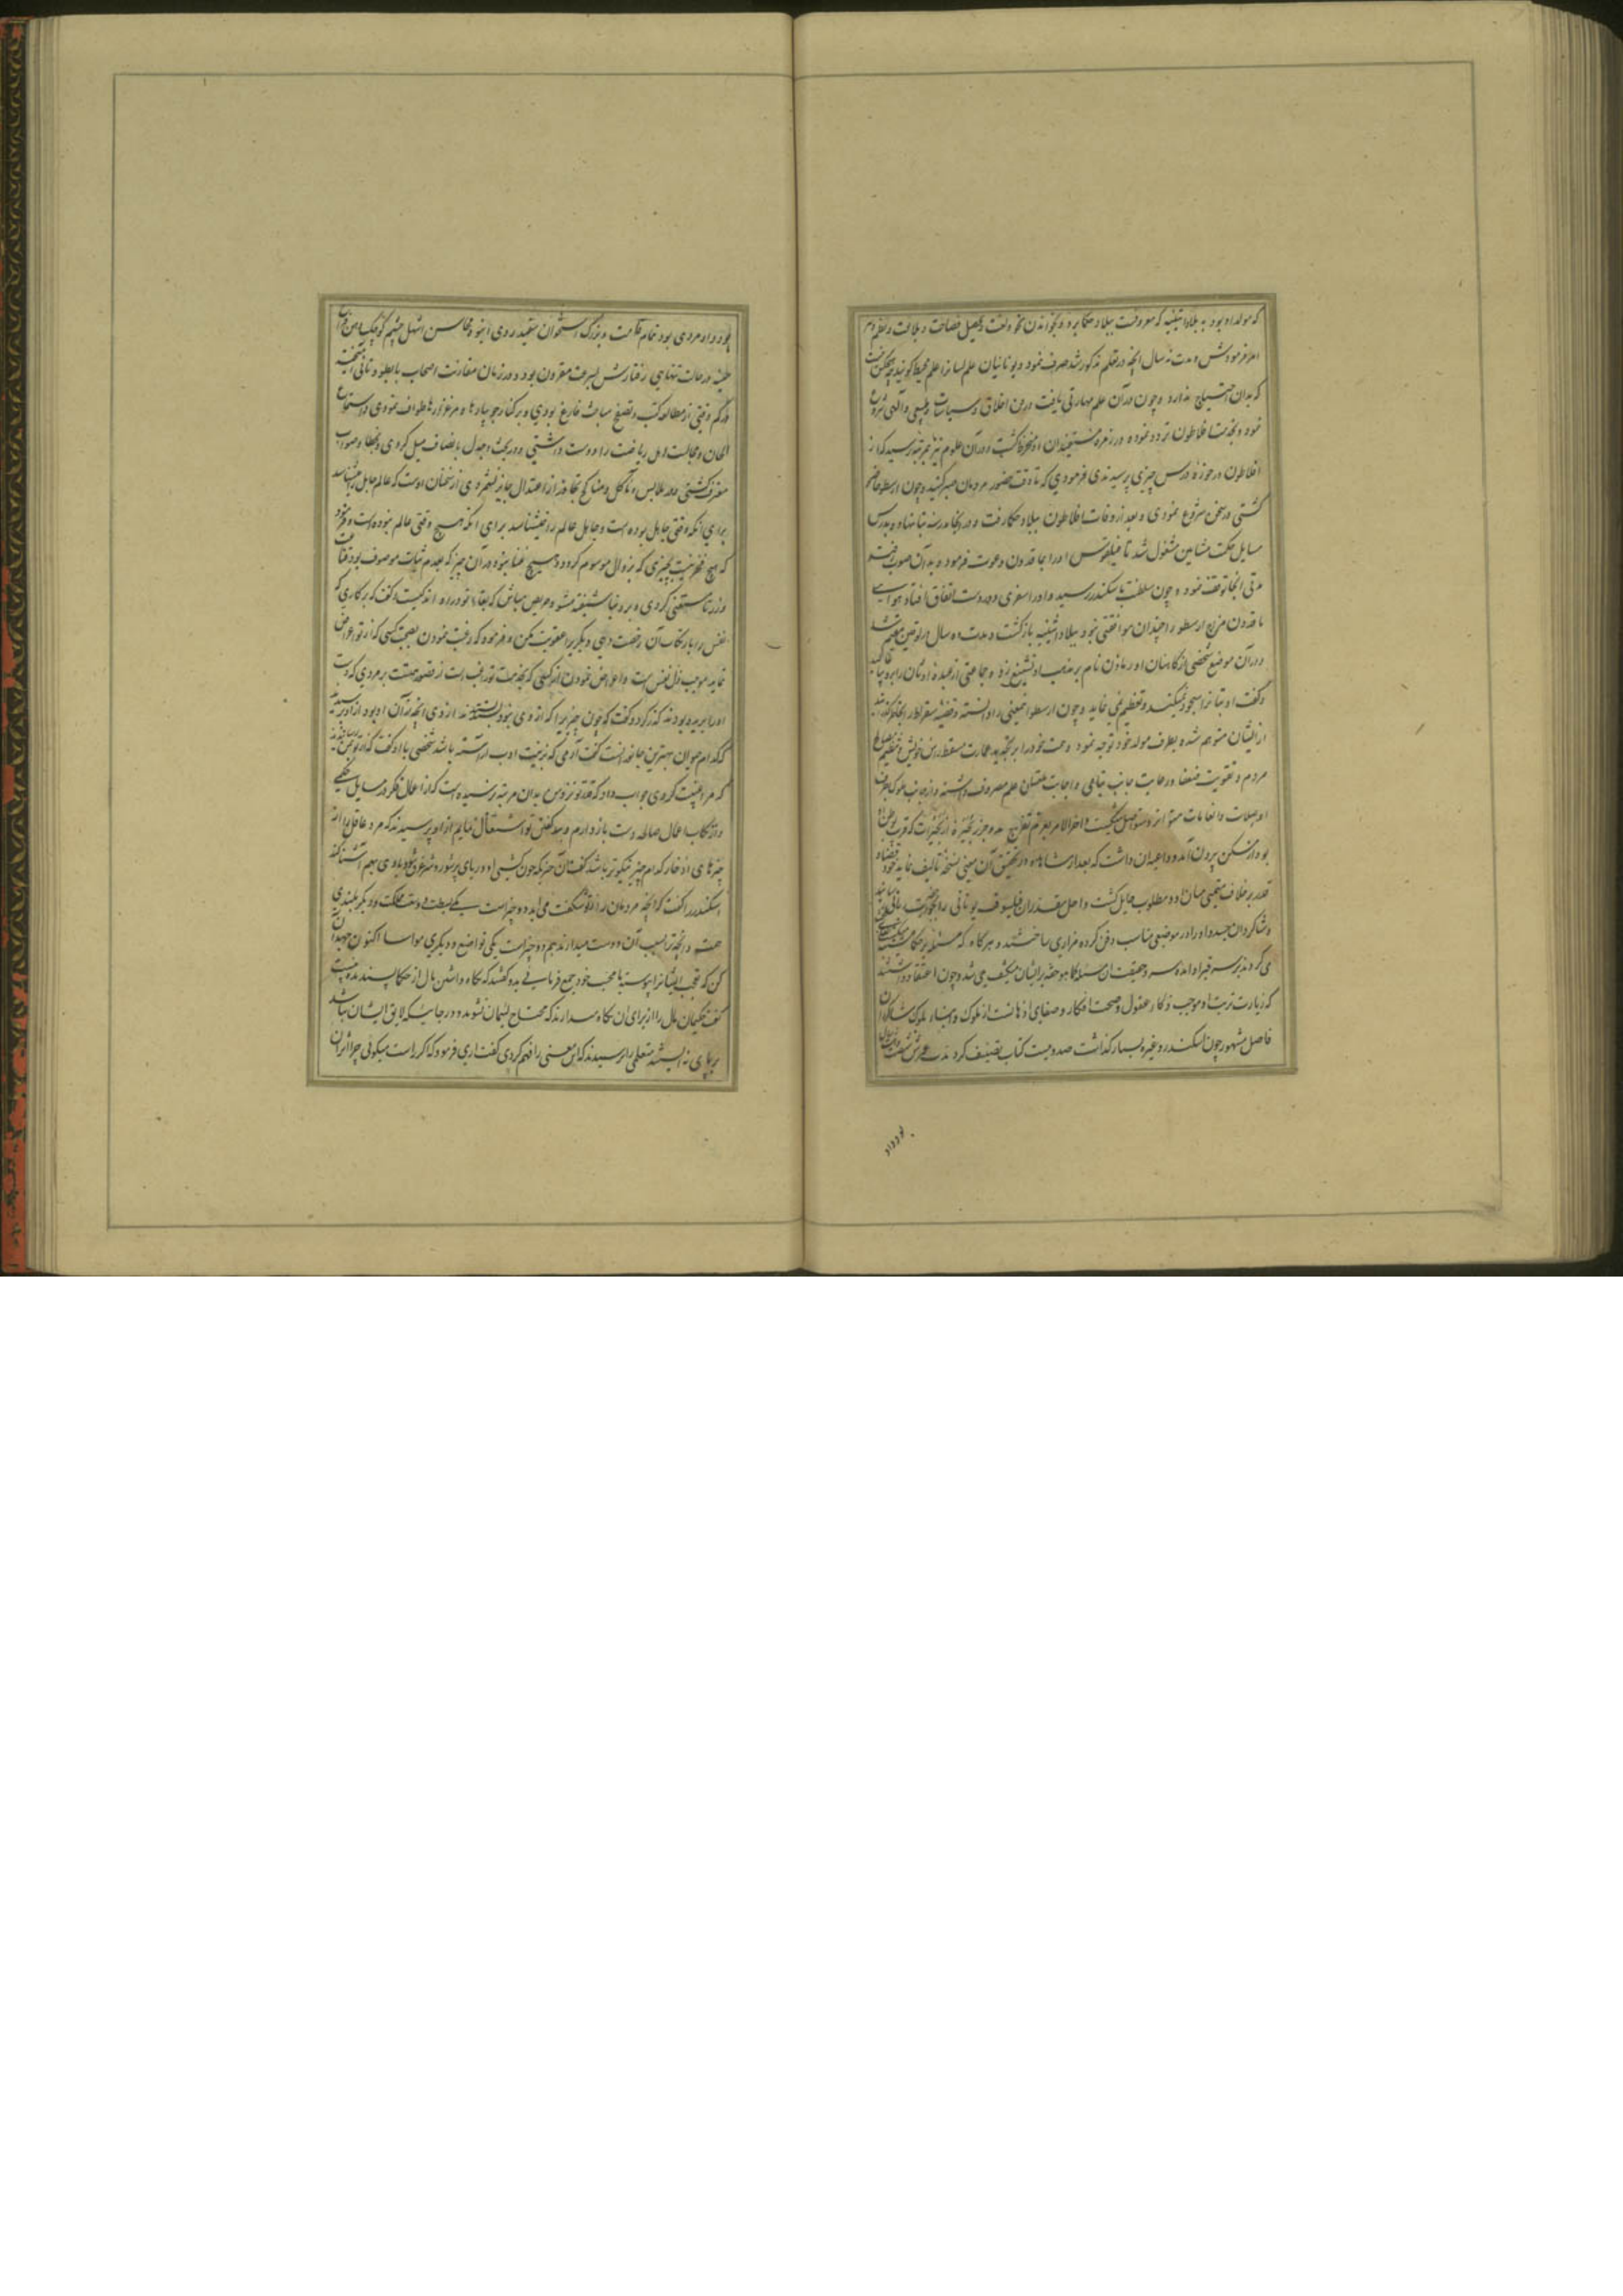 که مولد او بود به بلاد اثینیه که معروفست ببلاد حکما برد و بخواندن نحو ولغت و تحصیل فصاحت و بلاغت و نظم
امر فرمودش و مدت نه سال آنچه در قلم مذکور شد صرف نمود و یونانیان علم لسانرا علم محیط گویند
که بدان احتیاج ندارد و چون در آن علم مهارتی یافت در فن اخلاق و سیاسات و طبیعی و الهی شروع
نمود و بخدمت افلاطون تردد نموده در زمره مستفیدان او منخرط گشت و در آن علوم نیز بمرتبه رسید که از
افلاطون در حوزه درس چیزی پرسیدندی فرمودی که تا وقت حضور مردمان صبر کنید و چون ارسطو حاضر
گشتی در سخن شروع نمودی و بعد از وفات افلاطون ببلاد حکما رفت و در آنجا مدرسه بنا نهاد و بدرس
مسایل حکمت مشایین مشغول شد تا فیلقوس او را بماقدون دعوت فرمود و بدان صوب رفت
مدتی آنجا توقف نمود و چون سلطنت باسکندر رسید و او را سفری دور دست اتفاق افتاد هوای
ماقدون مزاج ارسطو را چندان موافقتی نبود ببلاد اثینیه بازگشت و مدت ده سال در لوقین مقیم شد
در آن موضع شخصی از کاهنان اورماذن نام بر مذهب او تشنیع زد و جماعتی از عبده اوثان را
و گفت او بتانرا سجود نمیکند و تعظیم نمی نماید و چون ارسطو این معنی را دانسته و قضیه سقراط
از ایشان متوهم شده بطرف مولد خود توجه نمود و همت خود را بر تجدید عمارت مسقط راس خویش
مردم و تقویت ضعفا و رعایت جانب یتامی و اجابت ملتمسان علم مصروف داشته و از جانب ملوک
او صلات و انعامات متواتر و متواصل میگشت و آخر الامر بعزم تفرج مد و جزر بحیره از بحیرات که قریب بوطن او
بود از مسکن بیرون آمد و داعیه آن داشت که بعد از مشاهده و تحقیق آن معنی نسخه تالیف نماید
قدر بر خلاف مقتضی میان او و مطلوب حایل گشت و اجل مقدر آن فیلسوف یونانی را
و شاگردان جسد او را در موضعی مناسب دفن کرده مزاری ساختند و هر گاه که مسئله
می کردند بر سر قبر او آمده و حقیقت آن مسئله کما هو حقه بر ایشان منکشف می شد و چون اعتقاد داشتند
که زیارت تربت او موجب ذکاء عقول و صحت افکار و صفای اذهانست از ملوک و ابناء ملوک
فاضل مشهور چون اسکندر و غیره بسیار گذاشت صد و بیست کتاب تصنیف کرد مدت عمرش شصت
بود و او
بود و او مردی بود تمام قامت و بزرگ استخوان سفید روی انبوه محاسن اشهل چشم کوچک دهن
در حالت تنهایی رفتارش بسرعت مقرون بود و در زمان مقارنت اصحاب با بطو و تانی
و هر گه وقتی از مطالعه کتب و تصفح مباحث فارغ بودی و بر کنار جویبارها و مرغزارها طواف نمودی و استماع
الحان و مجالست اهل ریاضت را دوست داشتی و در بحث و جدل بانصاف میل کردی و بخطا و صواب
معترف گشتی و در ملابس و مآکل و مناکح تجاوز از اعتدال جایز نشمردی از سخنان اوست که عالم جاهل را میشناسد
برای آنکه وقتی جاهل بوده است و جاهل عالم را نمیشناسد برای آنکه هیچ وقتی عالم نبوده است و فرمود
که هیچ فخر نیست بچیزی که بزوال موسوم گردد و هیچ غنا نبود در آن چیز که بعدم ثبات موصوف بود
ورزد تا مستغنی گردی و بر دنیا شیفته مشو و حریص مباش که بقاء تو در او اندکیست و گفت که بر کاری که
نفس را بارتکاب آن رخصت دهی دیگریرا عقوبت مکن و فرموده که رغبت نمودن بصحبت کسی که از تو اعراض
نماید موجب ذل نفس است و اعراض نمودن از کسی که بصحبت تو راغب است از قصور همت بر مردی که دست
او را بریده بودند گذر کرد و گفت که چون چیزیرا که از وی نبود بستد ستدند از وی آنچه از آن او بود از او پرسیدند
که کدام حیوان بهترین جانورانست گفت آدمی که بزینت ادب آراسته باشد شخصی با او گفت که
که مرا غیبت کردی جواب داد که قدر تو نزد من بدان مرتبه نرسیده است که از اعمال فکر در مسایل حکمی
و ارتکاب اعمال صالحه دست باز دارم و بد گفتن تو اشتغال نمایم از او پرسیدند که مرد عاقل را از
چیزهای اذخار کدام چیز نیکوتر باشد گفت آن چیز که چون کشتی او در دریای پر شور و شر غرق شود
اسکندر را گفت که آنچه مردمان را از تو شگفت می آید دو چیز است یکی بسطت و وسعت مملکت و دیگر بلندی
همت و آنچه ترا بسبب آن دوست میدارند هم دو چیز است یکی تواضع و دیگری مواسا اکنون جهد
کن که تعجب ایشانرا پیوسته با محبت خود جمع فرمایی بدو گفتند که نگاه داشتن مال از حکما پسندیده نیست
گفت حکیمان مال را از برای آن نگاه میدارند که محتاج لئیمان نشوند و در جاییکه لایق ایشان نباشد
بر پای نه ایستند متعلمی را پرسیدند که این معنی را فهم کردی گفت آری فرمود که اگر راست میگوئی چرا اثر آن